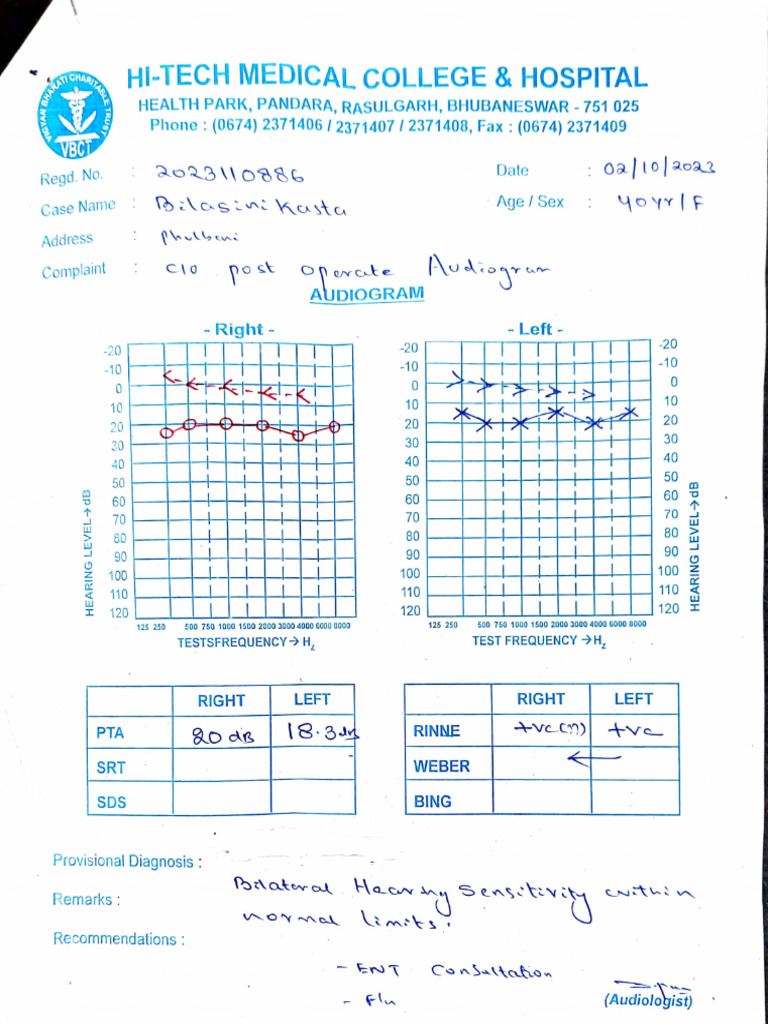 HI-TECH MEDICAL COLLEGE & HOSPITAL
HEALTH PARK, PANDARA, RASULGARH, BHUBANESWAR - 751 025
Phone : (0674) 2371406 / 2371407 / 2371408, Fax : (0674) 2371409
VIGYAN BHARATI CHARITABLE TRUST
VBCT
Regd. No. : 2023110886 Date : 02/10/2023
Case Name : Bilasini Kasta Age / Sex : 40yr/F
Address : Phulbani
Complaint : C/o post operate Audiogram
AUDIOGRAM
- Right - - Left -
-20 -20 -20
-10 -10 -10
0 0 0
10 10 10
20 20 20
30 30 30
40 40 40
50 50 50
60 60 60
70 70 70
80 80 80
90 90 90
100 100 100
110 110 110
120 120 120
HEARING LEVEL→dB HEARING LEVEL→dB
125 250 500 750 1000 1500 2000 3000 4000 6000 8000 125 250 500 750 1000 1500 2000 3000 4000 6000 8000
TESTSFREQUENCY→Hz TEST FREQUENCY→Hz
RIGHT LEFT RIGHT LEFT
PTA 20 dB 18.3 dB RINNE +ve(n) +ve
SRT WEBER ←
SDS BING
Provisional Diagnosis :
Remarks : Bilateral Hearing Sensitivity within
normal limits.
Recommendations :
- ENT Consultation
- F/u
(Audiologist)